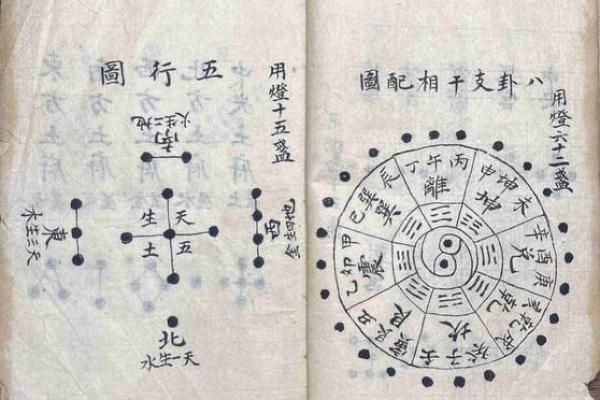 用燈六十二盞
八卦支干相配圖
丙午丁
離
未坤申
坤
庚酉辛
兌
戌乾亥
乾
壬子癸
坎
丑艮寅
艮
甲卯乙
震
辰巽巳
巽
用燈十五盞
五行圖
南
地二生火
天五生土
東
天三生木
西
地四生金
北
天一生水